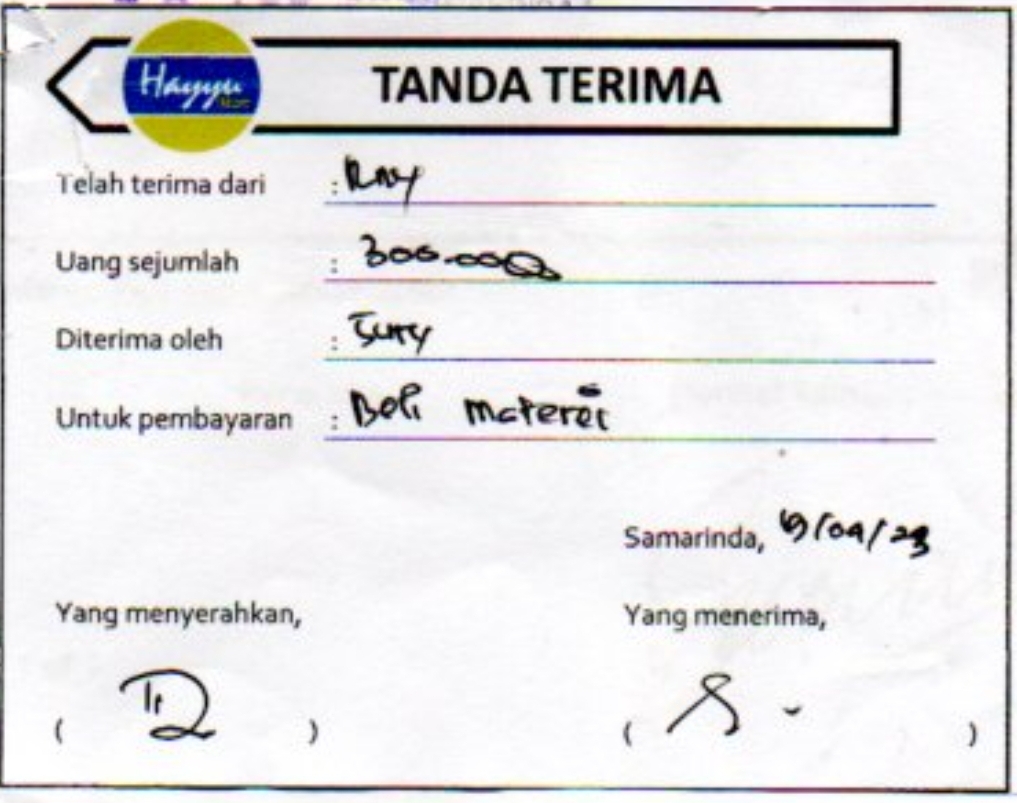 Hayyu
TANDA TERIMA
Telah terima dari : Ray
Uang sejumlah : 300.000
Diterima oleh :
Untuk pembayaran : Beli materei
Samarinda, /23
Yang menyerahkan,
Yang menerima,
( )
( )